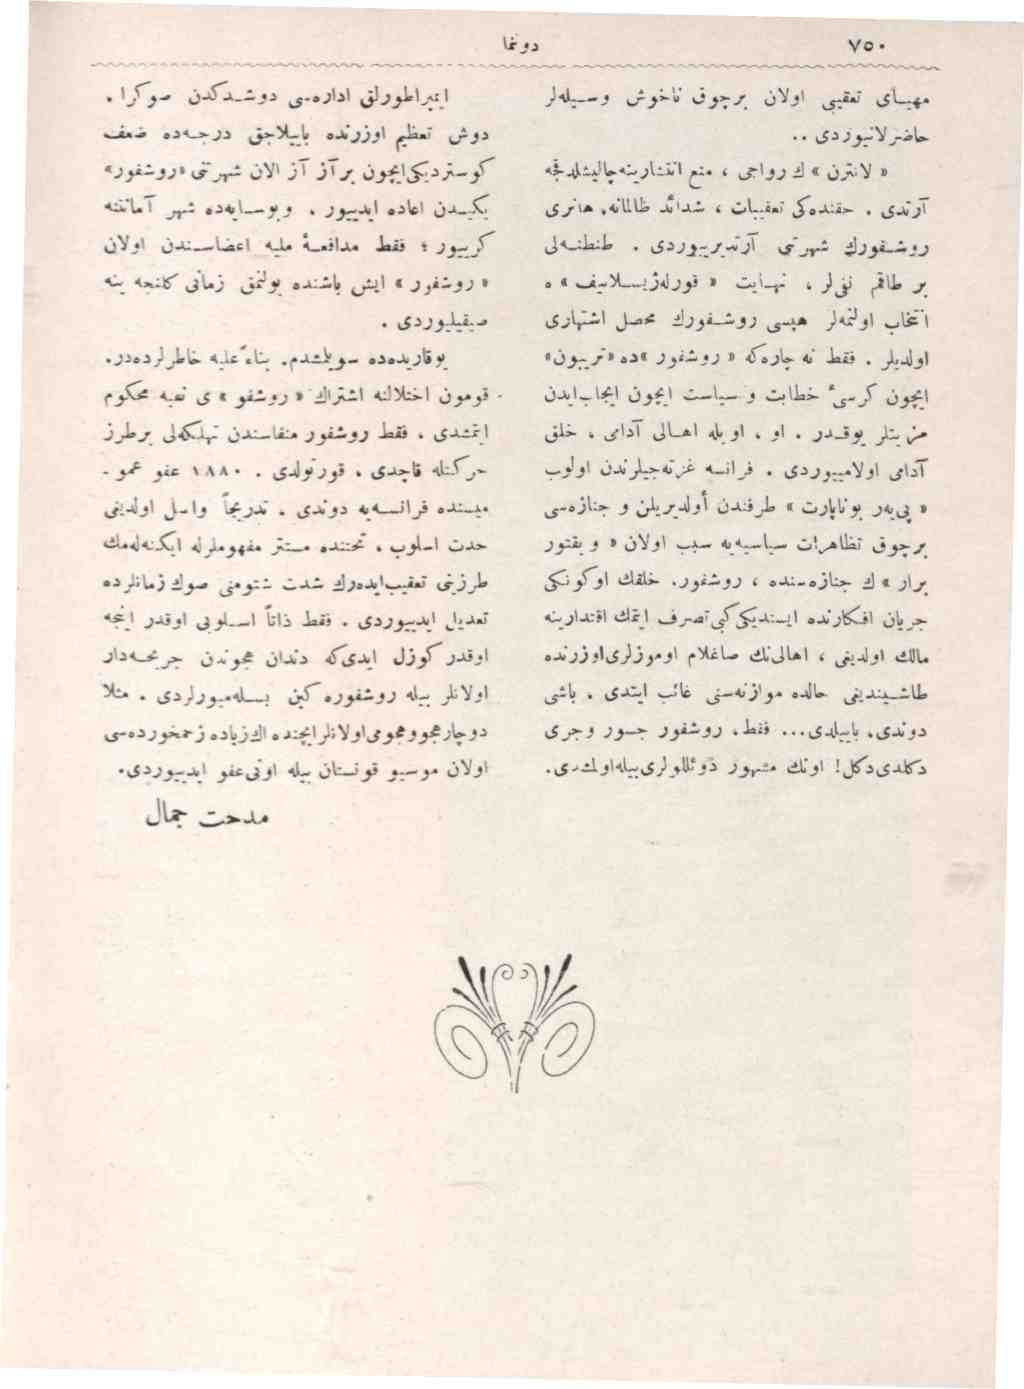 ٧٥٠
دوننما
مهيـای تعقيبی اولان برچوق ناخوش وسـيله‌لر
حاضرلانيوردی ..
« لانترن » ك رواجی ، منع انتشارينه چاليشلدقجه
آرتدی . حقنده‌كی تعقيبات ، شدائد ظالمانه، هانری
روشـفورك شهرتنی آرتديريیوردی . طنطنـه‌لی
بر طاقم نفی‌لر ، نهـايت « قورله‌ژيسـلاتيف » ه
انتخاب اولنمه‌لر هپسی روشـفورك محصل اشتهاری
اولديلر . فقط نه چاره‌كه « روشفور »ده «تريبون»
ايچون كرسیٔ خطابت و سياست ايچون ايجاب‌ايدن
مزيتلر يوقـدر . او ، اويله اهـالی آدامی ، خلق
آدامی اولاميیوردی . فرانسه غزته‌جيلرندن اولوب
« پی‌یه‌ر بوناپارت » طرفندن أولديريلن و جنازه‌سی
برچوق تظاهرات سياسيه‌يه سبب اولان « ويقتور
برار » ك جنازه‌سنده ، روشفور. خلقك اوكونكی
جريان افـكارنده ايستديكی كبی تصرف ايتمك اقتدارينه
مالك اولديغی ، اهالی‌نك صاغلام اوموزلری اوزرنده
طاشـينديغی حالده موازنه‌سنی غائب ايتدی . باشی
دوندی، بايیلدی... فقط، روشفور جسور وجری
دكلدی‌دكل! اونك مشهور دوئللولری‌بيله‌اولمشدی.
ايمپراطورلق اداره‌سی دوشـدكدن صوكرا .
دوش تعظيم اوزرنده بايیلاجق درجـه‌ده ضعف
كوسترديكی‌ايچون بر آز آز الان شهرتنی «روشفور»
يكيـدن اعاده ايديیور . وبوسـايه‌ده شهر آماتنه
كريیور ؛ فقط مدافعـهٔ مليه اعضاسـندن اولان
« روشفور » ايش باشنده بولنمق زمانی كلنجه ينه
صيقيليوردی .
يوقاريده‌ده سويلمشدم. بناءً عليه خاطرلرده‌در.
قومون اختلالنه اشتراك « روشفو » ی نفيه محكوم
ايتمشدی . فقط روشفور منفاسندن تهلكه‌لی برطرز
حركتله قاچدی ، قورتولدی . ١٨٨٠ عفو عمو -
ميسنده فرانسـه‌يه دوندی . تدريجاً واصل اولديغی
حدت اسلوب ، تحتنده مستتر مفهوملرله ايكنه‌له‌مك
طرزينی تعقيب‌ايده‌رك شدت شتومنی صوك زمانلرده
تعديل ايديیوردی . فقط ذاتاً اسـلوبی اوقدر اينجه
اوقدر كوزل ايدی‌كه دندان هجوندن جريحـه‌دار
اولانلر بيله روشفوره كين بسـله‌ميورلردی . مثلا
دوچارهجووهجومی‌اولانلرايچنده‌اك‌زياده‌زخمخورده‌سی
اولان موسيو قونستان بيله اونی عفو ايديیوردی.
مدحت جمال